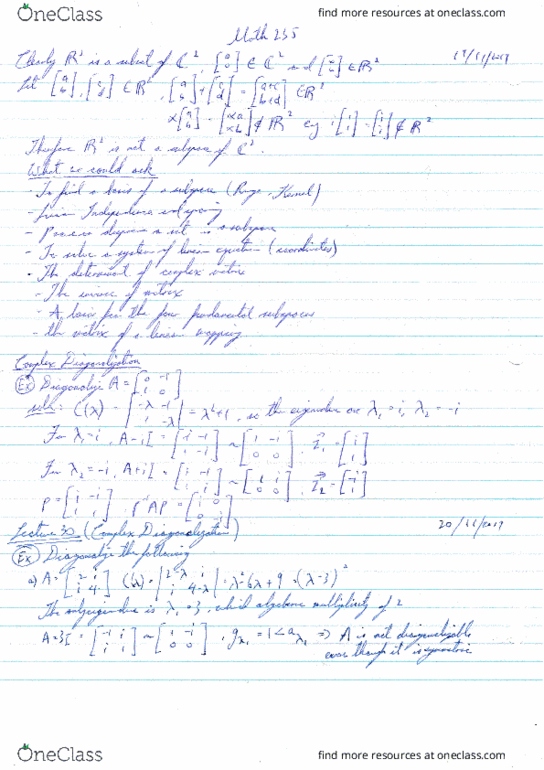 OneClass
find more resources at oneclass.com
Math 235
Clearly R² is a subset of C², [0 0] ∈ C² and [0 0] ∈ R²
Let [a b], [c d] ∈ R², [a b] + [c d] = [a+c b+d] ∈ R²
α[a b] = [αa αb] ∉ R² eg i[1 1] = [i i] ∉ R²
Therefore R² is not a subspace of C².
What we could ask
- To find a basis of a subspace (Range, Kernel)
- Linear Independence and spanning
- Prove or disprove a set is a subspace
- To solve a system of linear equation (coordinates)
- The determinant of complex matrix
- The inverse of matrix
- A basis for the four fundamental subspaces
- the matrix of a linear mapping
Complex Diagonalization
Ex Diagonalize A = [0 -1; 1 0]
soln: C(λ) = |-λ -1; 1 -λ| = λ²+1, so the eigenvalues are λ₁ = i, λ₂ = -i
For λ₁ = i, A - iI = [-i -1; 1 -i] ~ [1 -i; 0 0],
For λ₂ = -i, A + iI = [i -1; 1 i] ~ [1 i; 0 0],
P = [i -i; 1 1], P⁻¹AP = [i 0; 0 -i]
Lecture 30 (Complex Diagonalization)
20/11/2017
Ex Diagonalize the following
a) A = [2 i; i 4] C(λ) = |2-λ i; i 4-λ| = λ²-6λ+9 = (λ-3)²
The only eigenvalue is λ₁ = 3, which algebraic multiplicity of 2
A-3I = [-1 i; i 1] ~ [1 -i; 0 0], g_λ₁ = 1 < a_λ₁ ⇒ A is not diagonalizable
even though it is symmetric
OneClass
find more resources at oneclass.com